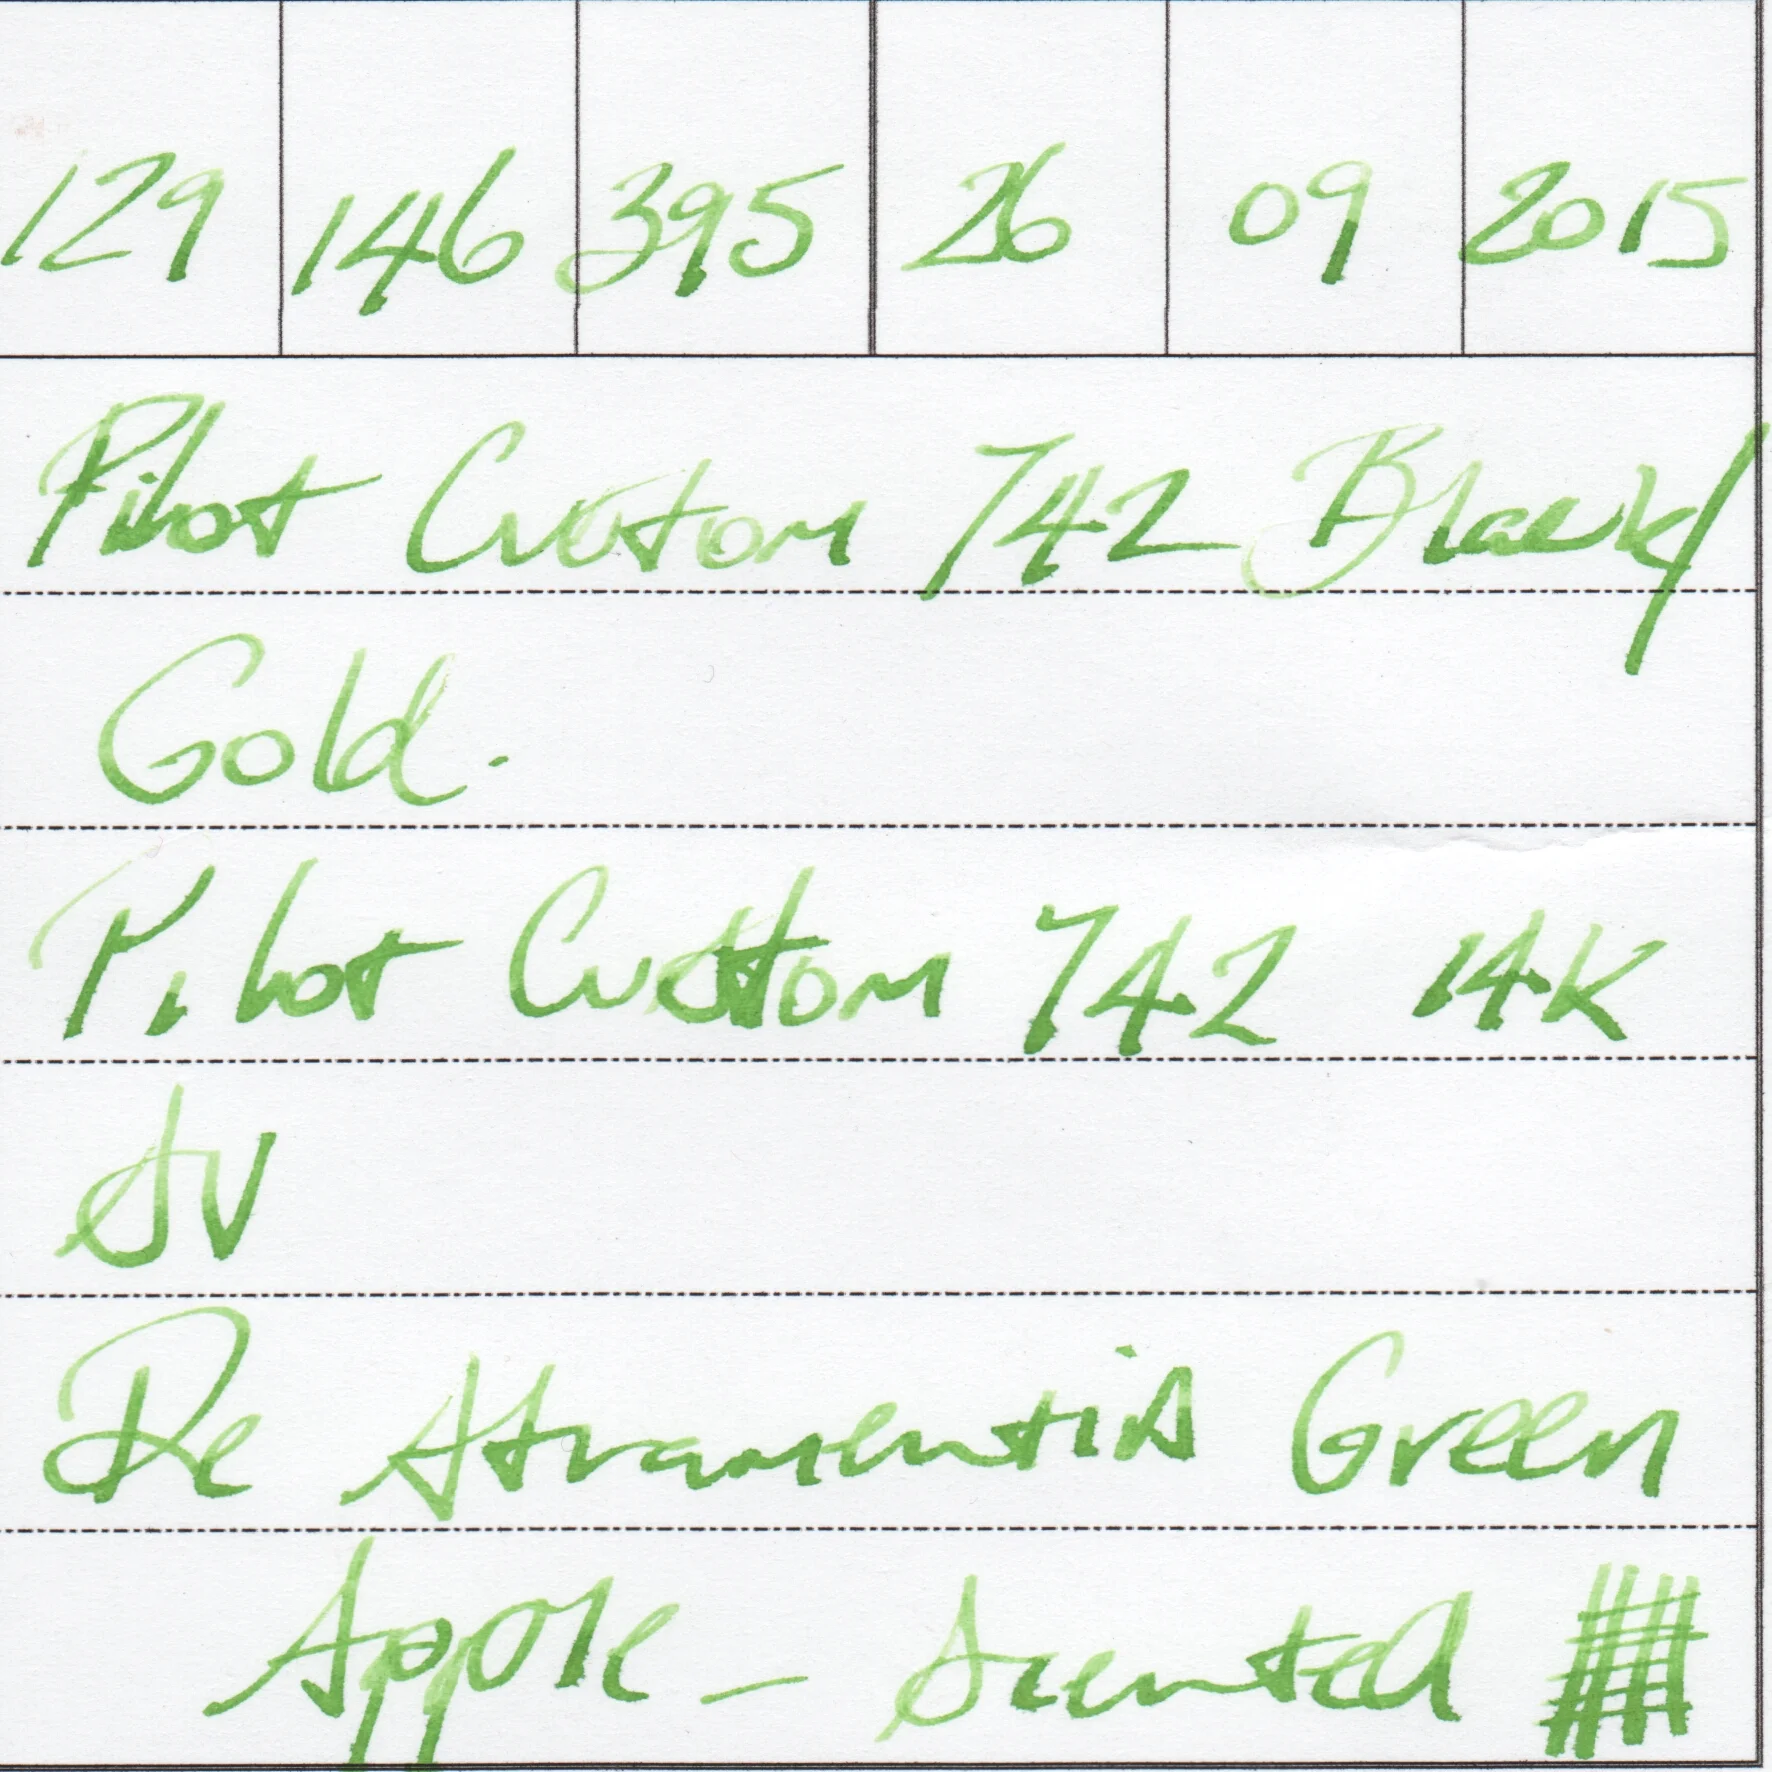 129 146 395 26 09 2015
Pilot Custom 742 Black/
Gold.
Pilot Custom 742 14K
SU
De Atramentis Green
Apple - Scented